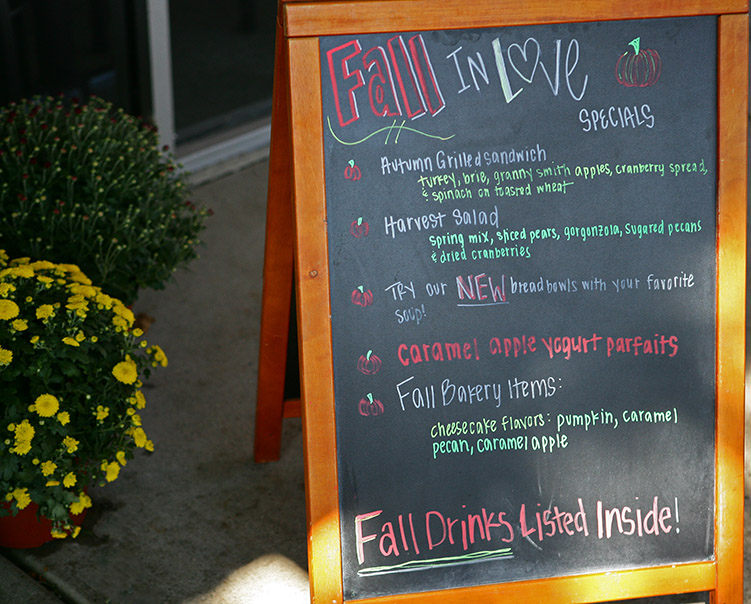 Fall IN LOVE
SPECIALS
Autumn Grilled Sandwich
turkey, brie, granny smith apples, cranberry spread,
& spinach on toasted wheat
Harvest Salad
spring mix, sliced pears, gorgonzola, sugared pecans
& dried cranberries
TRY our NEW bread bowls with your favorite
soup!
caramel apple yogurt parfaits
Fall Bakery Items:
cheesecake flavors: pumpkin, caramel
pecan, caramel apple
Fall Drinks Listed Inside!